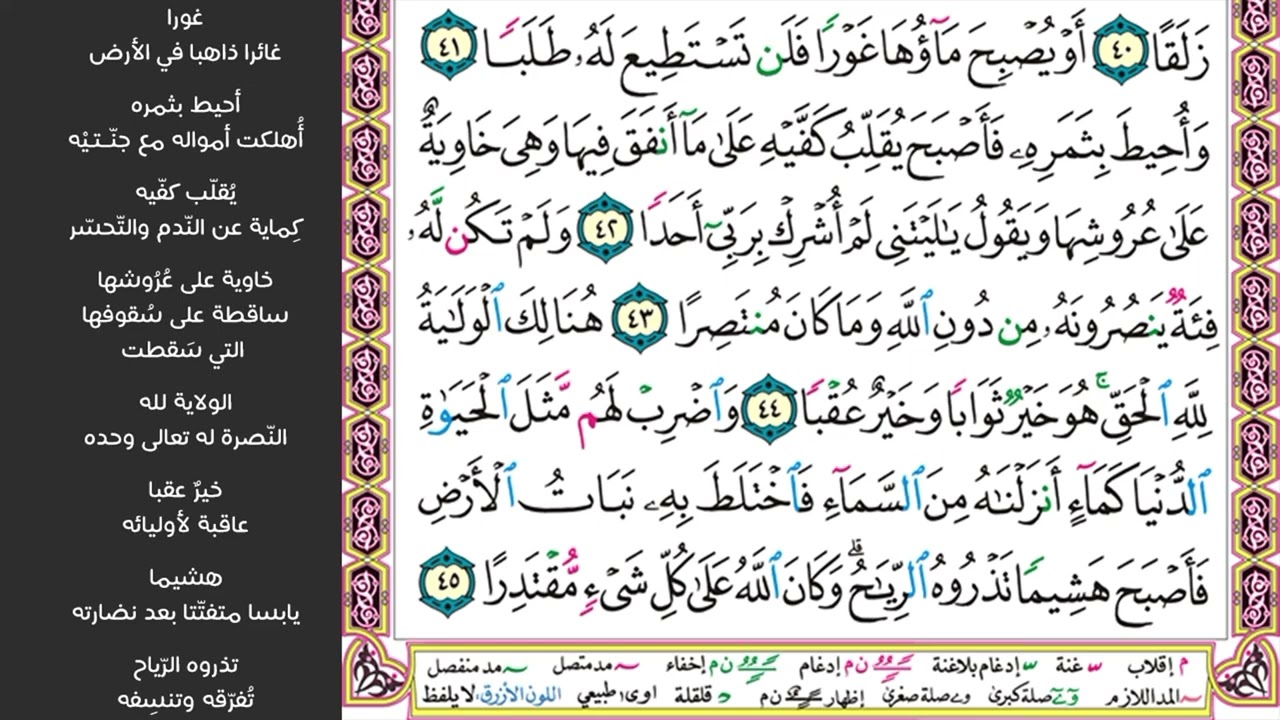 زَلَقًا ٤٠ أَوْ يُصْبِحَ مَآؤُهَا غَوْرًا فَلَن تَسْتَطِيعَ لَهُۥ طَلَبًا ٤١
وَأُحِيطَ بِثَمَرِهِۦ فَأَصْبَحَ يُقَلِّبُ كَفَّيْهِ عَلَىٰ مَآ أَنفَقَ فِيهَا وَهِىَ خَاوِيَةٌ
عَلَىٰ عُرُوشِهَا وَيَقُولُ يَـٰلَيْتَنِى لَمْ أُشْرِكْ بِرَبِّىٓ أَحَدًا ٤٢ وَلَمْ تَكُن لَّهُۥ
فِئَةٌ يَنصُرُونَهُۥ مِن دُونِ ٱللَّهِ وَمَا كَانَ مُنتَصِرًا ٤٣ هُنَالِكَ ٱلْوَلَـٰيَةُ
لِلَّهِ ٱلْحَقِّ ۚ هُوَ خَيْرٌ ثَوَابًا وَخَيْرٌ عُقْبًا ٤٤ وَٱضْرِبْ لَهُم مَّثَلَ ٱلْحَيَوٰةِ
ٱلدُّنْيَا كَمَآءٍ أَنزَلْنَـٰهُ مِنَ ٱلسَّمَآءِ فَٱخْتَلَطَ بِهِۦ نَبَاتُ ٱلْأَرْضِ
فَأَصْبَحَ هَشِيمًا تَذْرُوهُ ٱلرِّيَـٰحُ ۗ وَكَانَ ٱللَّهُ عَلَىٰ كُلِّ شَىْءٍ مُّقْتَدِرًا ٤٥
م إقلاب غنة إدغام بلاغنة ن م إدغام ن م إخفاء مد متصل مد منفصل
المد اللازم صلة كبرى صلة صغرى إظهار ن م قلقلة اوى طبيعي اللون الأزرق لا يلفظ
غورا
غائرا ذاهبا في الأرض
أحيط بثمره
أُهلكت أمواله مع جنّـتيْه
يُقلّب كفّيه
كِماية عن النّدم والتّحسّر
خاوية على عُرُوشها
ساقطة على سُقوفها
التي سَقطت
الولاية لله
النّصرة له تعالى وحده
خيرٌ عقبا
عاقبة لأوليائه
هشيما
يابسا متفتّتا بعد نضارته
تذروه الرّياح
تُفرّقه وتنسِفه